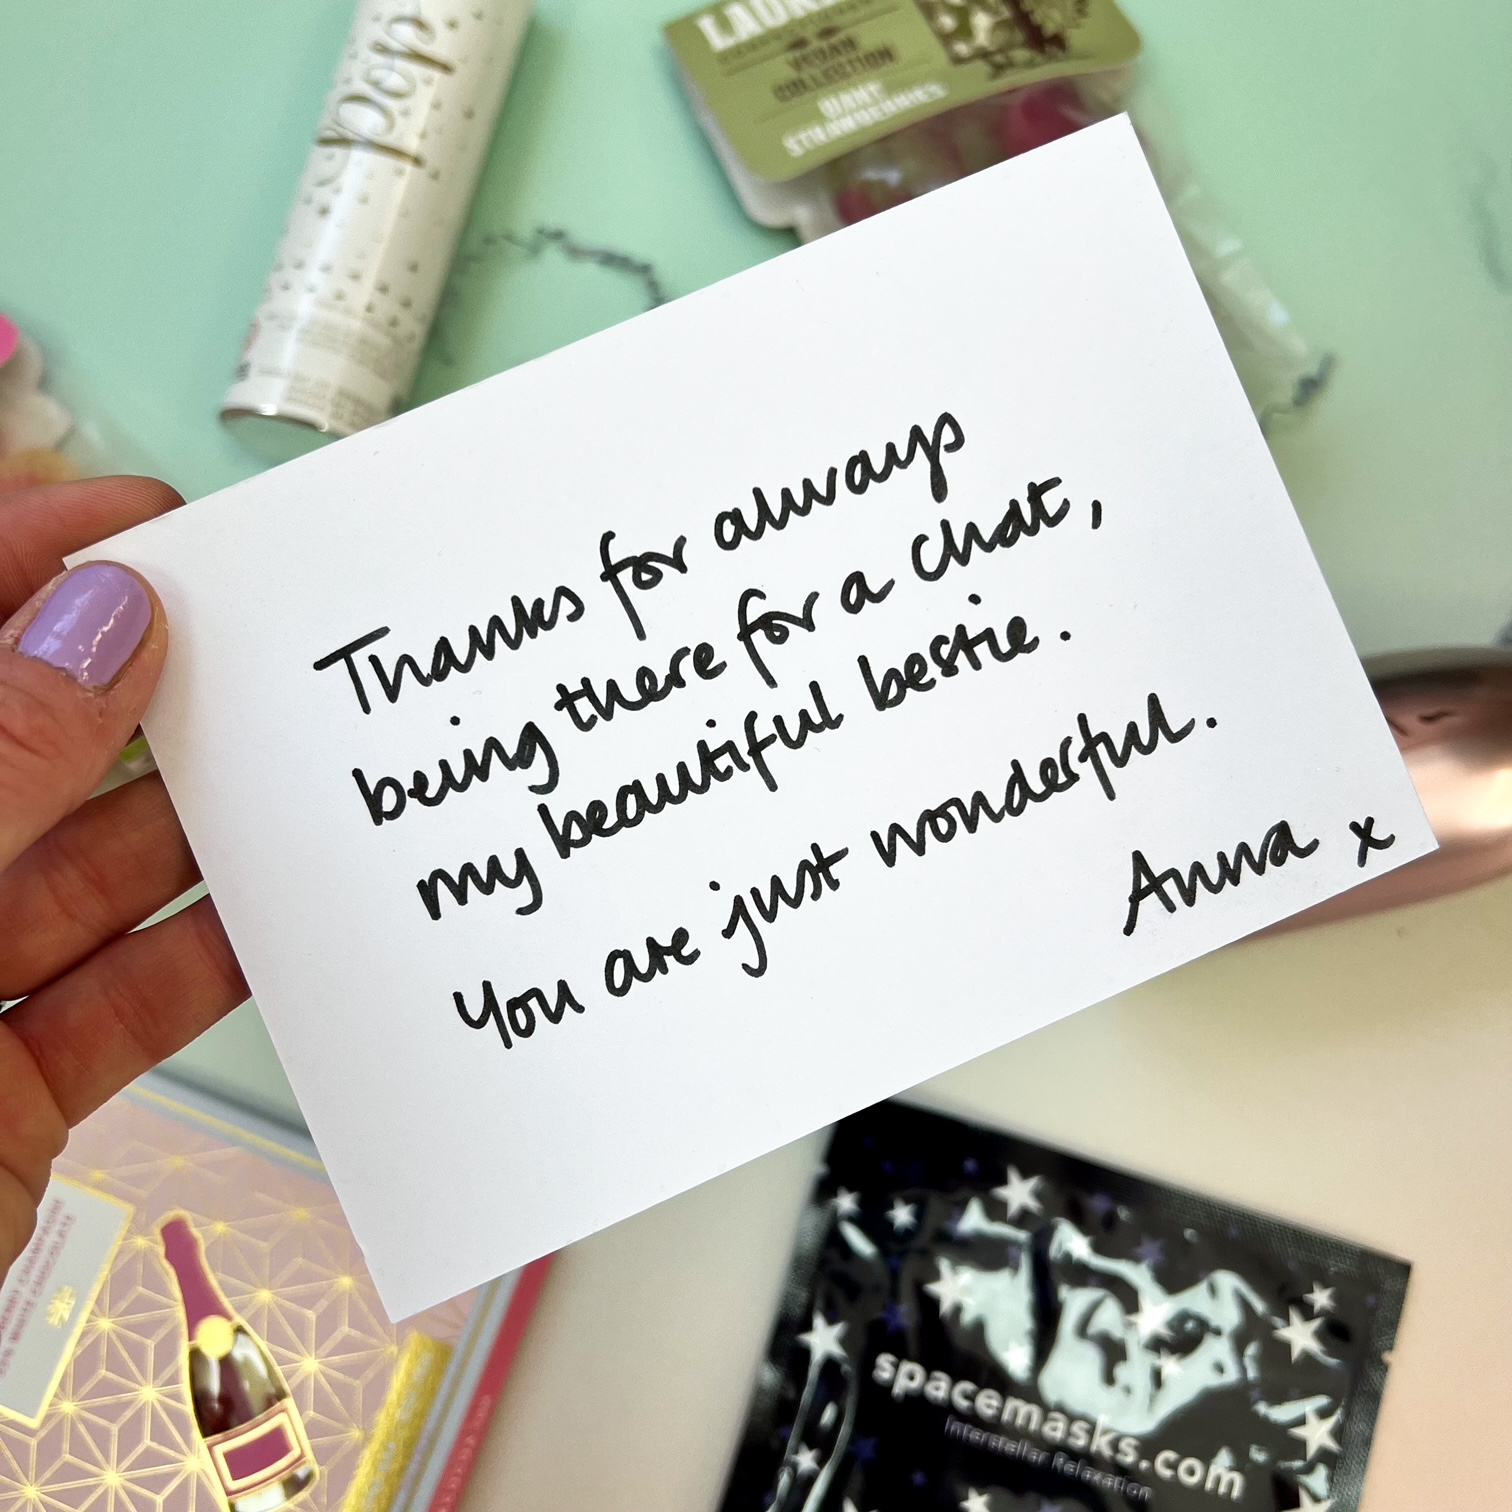 pop!
LAUR
VEGAN
COLLECTION
GIANT
STRAWBERRIES
Thanks for always
being there for a chat,
my beautiful bestie.
You are just wonderful.
Anna x
spacemasks.com
Interstellar Relaxation